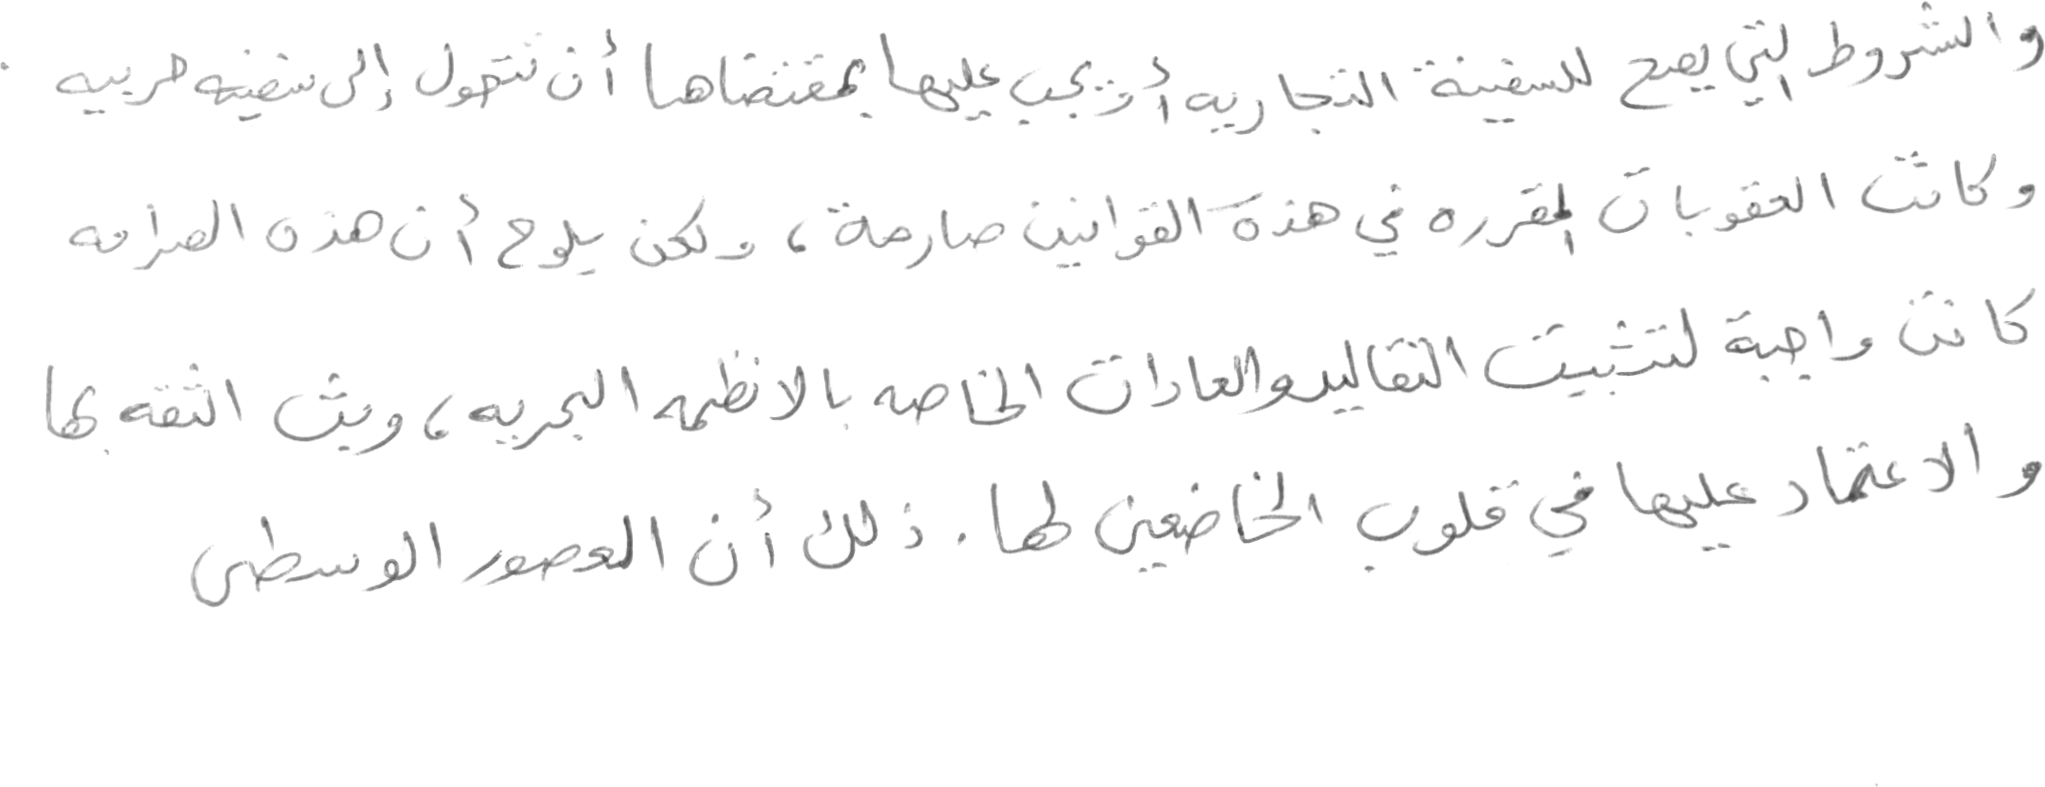 والشروط التي يصح للسفينة التجاريه أو يجب عليها بمقتضاها أن تتحول إلى سفينه حربيه .
وكانت العقوبات المقرره في هذه القوانين صارمة، ولكن يلوح أن هذه الصرامه
كانت واجبة لتثبيت التقاليد والعادات الخاصه بالانظمه البحريه، وبث الثقه بها
والاعتماد عليها في قلوب الخاضعين لها. ذلك أن العصور الوسطى